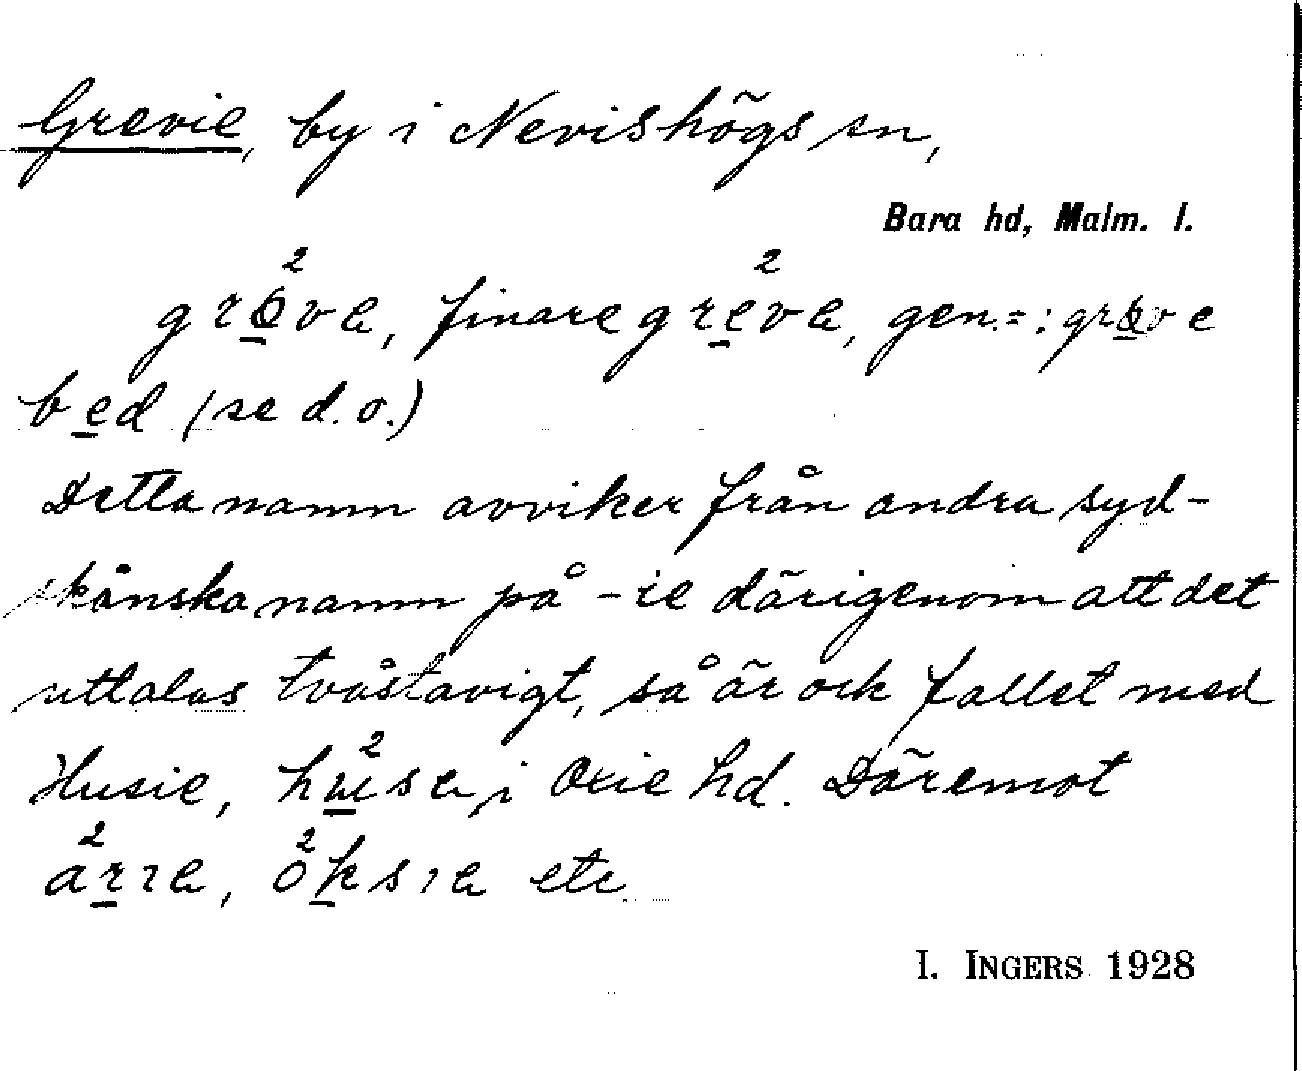 Grevie, by i Nevishögs sn,
Bara hd, Malm. l.
grø̱²va, finare gre̱²va, gen. = : grø̱ve
be̱d (se d. o.)
Detta namn avviker från andra syd-
skånska namn på -ie därigenom att det
uttalas tvåstavigt, så är ock fallet med
Husie, hu̱²sa, i Oxie hd. Däremot
a²ṟıa, o²ḵsıa etc
I. INGERS 1928